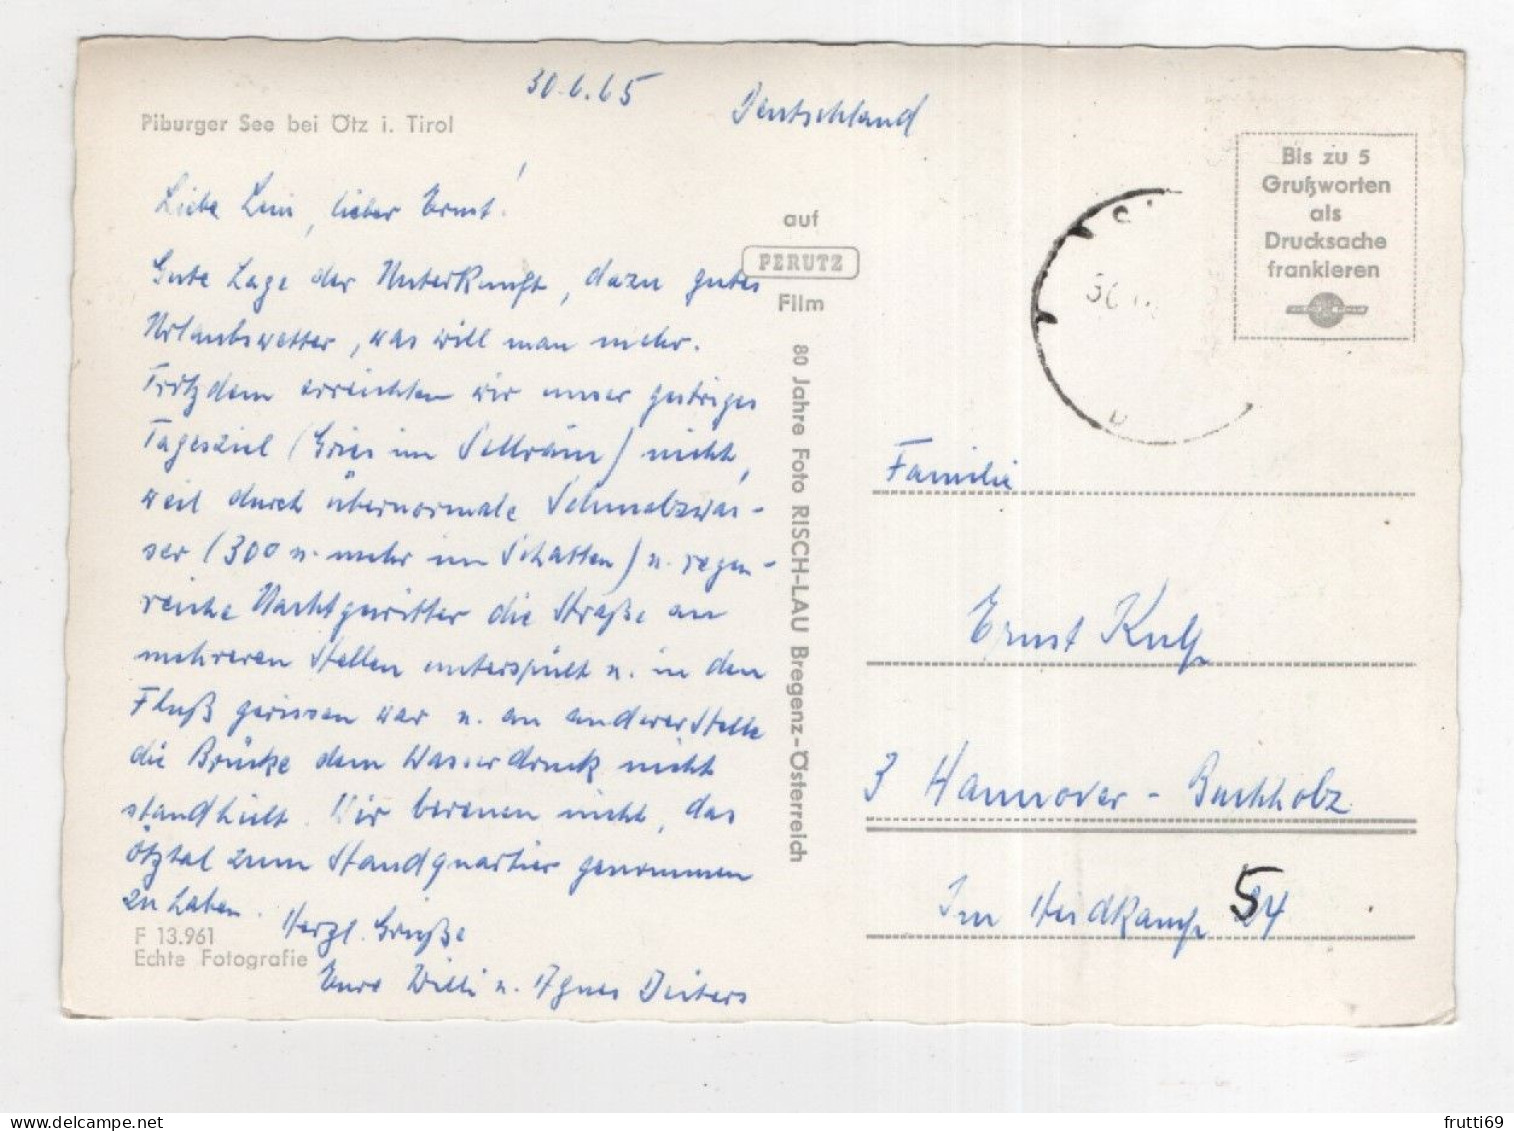 30.6.65
Deutschland
Piburger See bei Ötz i. Tirol
Liebe Leni, lieber Ernst!
Gute Lage der Unterkunft, dazu gutes
Urlaubswetter, was will man mehr.
Trotzdem erreichten wir unser gestriges
Tagesziel (Gries im Sellrain) nicht,
weil durch übernormale Schmelzwas-
ser (30° u. mehr im Schatten) u. regen-
reiche Nachtgewitter die Straße an
mehreren Stellen unterspült u. in den
Fluß gerissen war u. an anderer Stelle
die Brücke dem Wasserdruck nicht
standhielt. Wir bereuen nicht, das
Ötztal zum Standquartier genommen
zu haben.
Herzl. Grüße
Eure Willi u. Agnes Dieters
F 13.961
Echte Fotografie
auf
PERUTZ
Film
80 Jahre Foto RISCH-LAU Bregenz-Österreich
Bis zu 5
Grußworten
als
Drucksache
frankieren
Familie
Ernst
3 Hannover - Buchholz
Im Heidkampe 54
frutti69